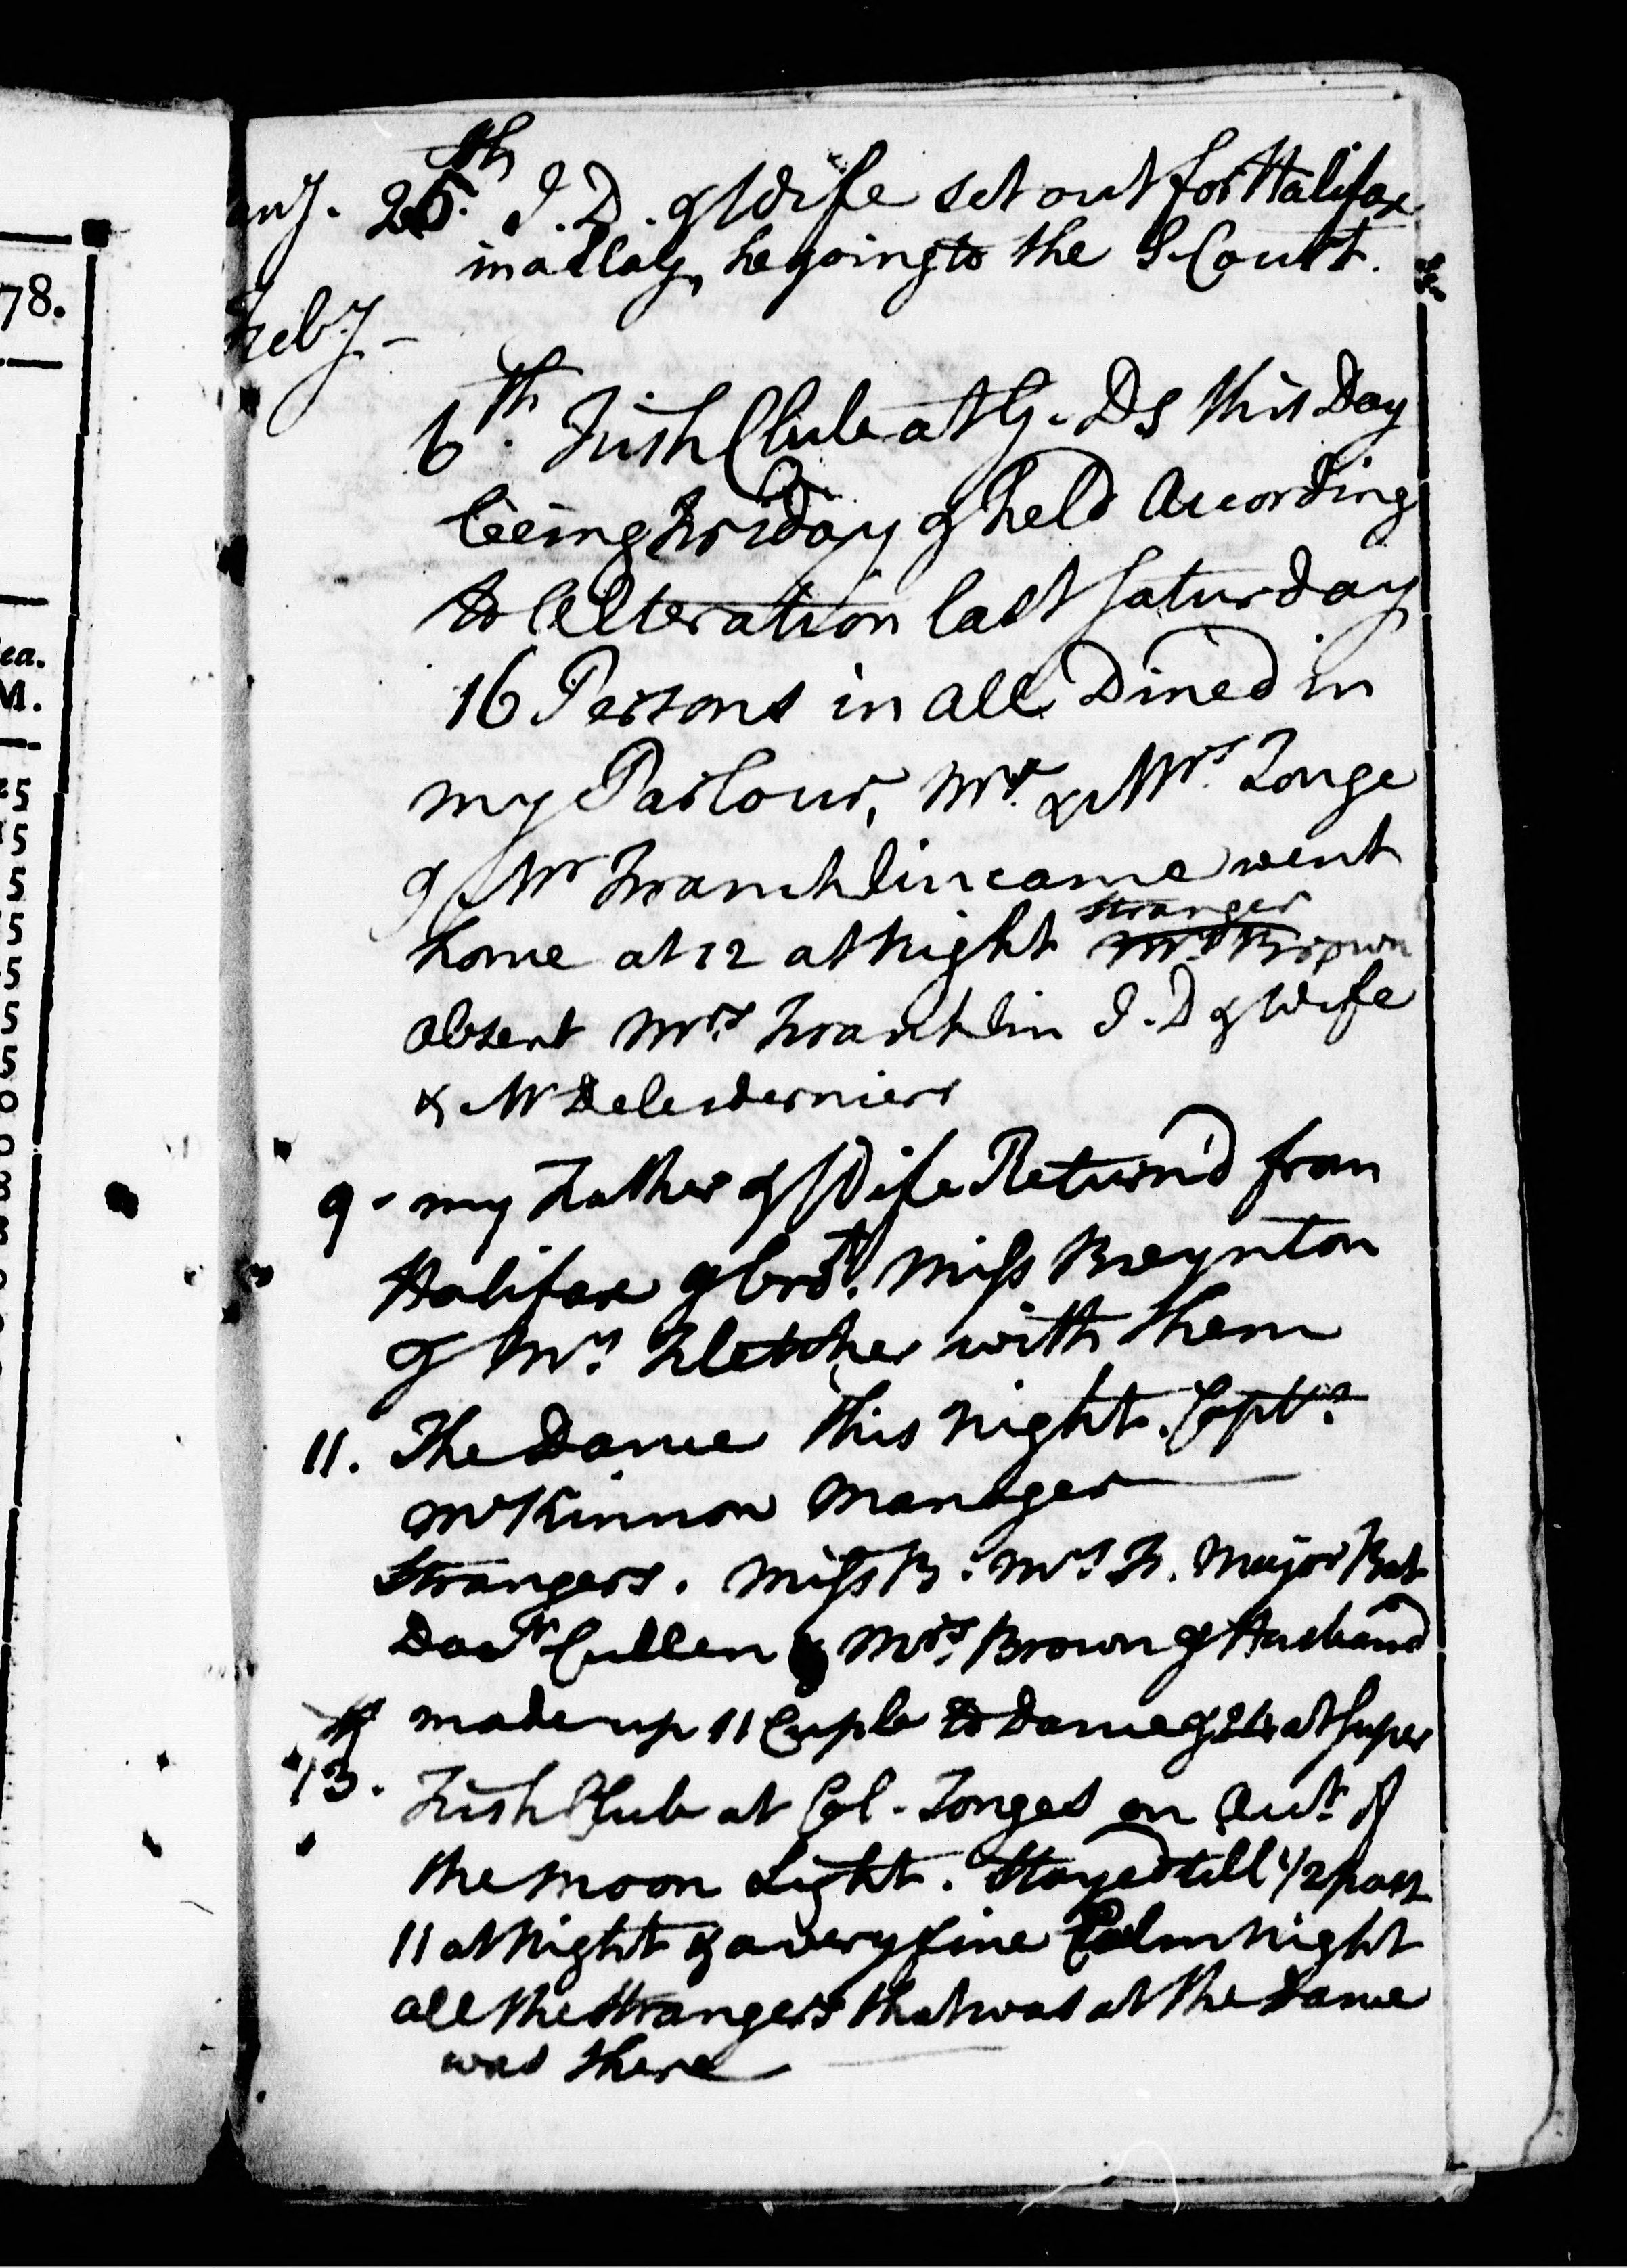 78.
ea.
M.
5
5
5
5
5
5
5
0
0
8
any. 25th J.D. & Wife set out for Halifax
in a Slay, he going to the S. Court.
Feby -
6th. Fish Clube at G. Ds this Day
being Friday & held Acording
to Alteration last Saturday
16 Persons in all Dined in
my Parlour, Mr. & Mrs. Tonge
& Mr Francklin came went
home at 12 at Night Stranger
Mr Brown
absent Mrs. Francklin J.D & Wife
& Mr Delesdernier
9 - my Father & Wife Return'd from
Halifax & brot. Miss Breynton
& Mrs. Fletcher with them
11. The Dance this Night. Capt.
McKinnon Manager
Strangers. Miss B. Mrs. F. Major Bat
Doctr Cullen & Mrs. Brown & Husband
made up 11 Cuple to Dance & 24 at Super
13. Fish Club at Col. Tonges on Acct. of
the Moon Light. Stayed till 1/2 past
11 at Night & a very fine Calm Night
all the Strangers that was at the Dance
was there